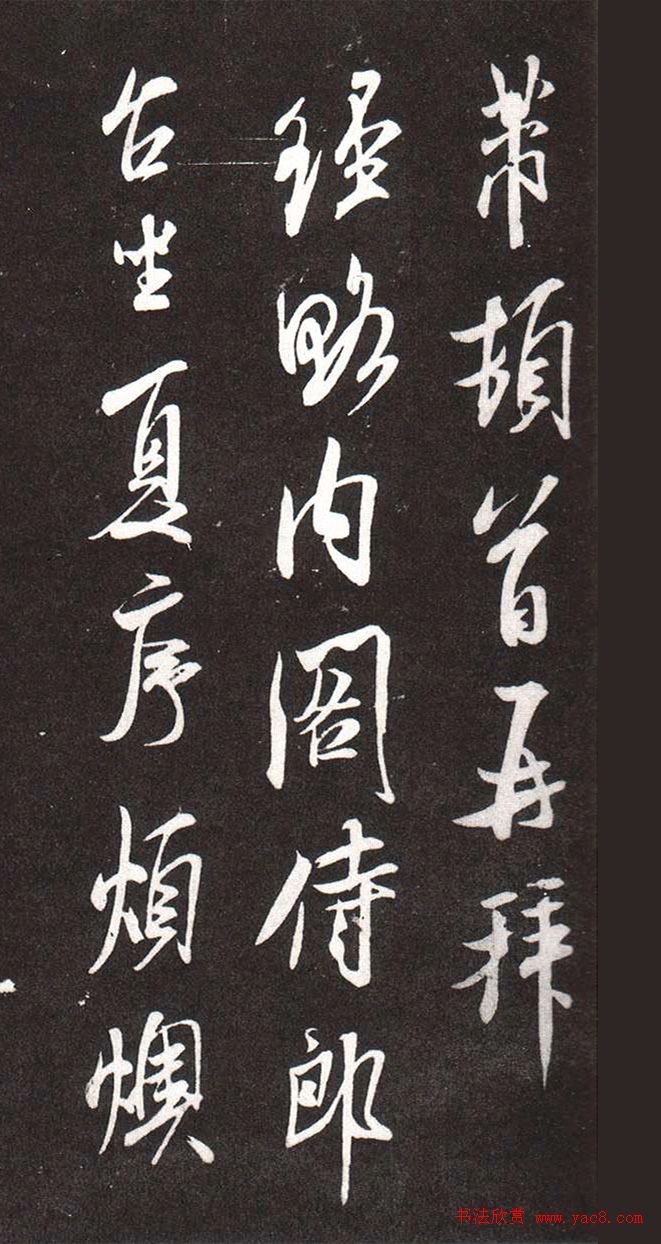 芾頓首再拜
經略内閣侍郎
台坐夏序煩燠
书法欣赏 www.yac8.com